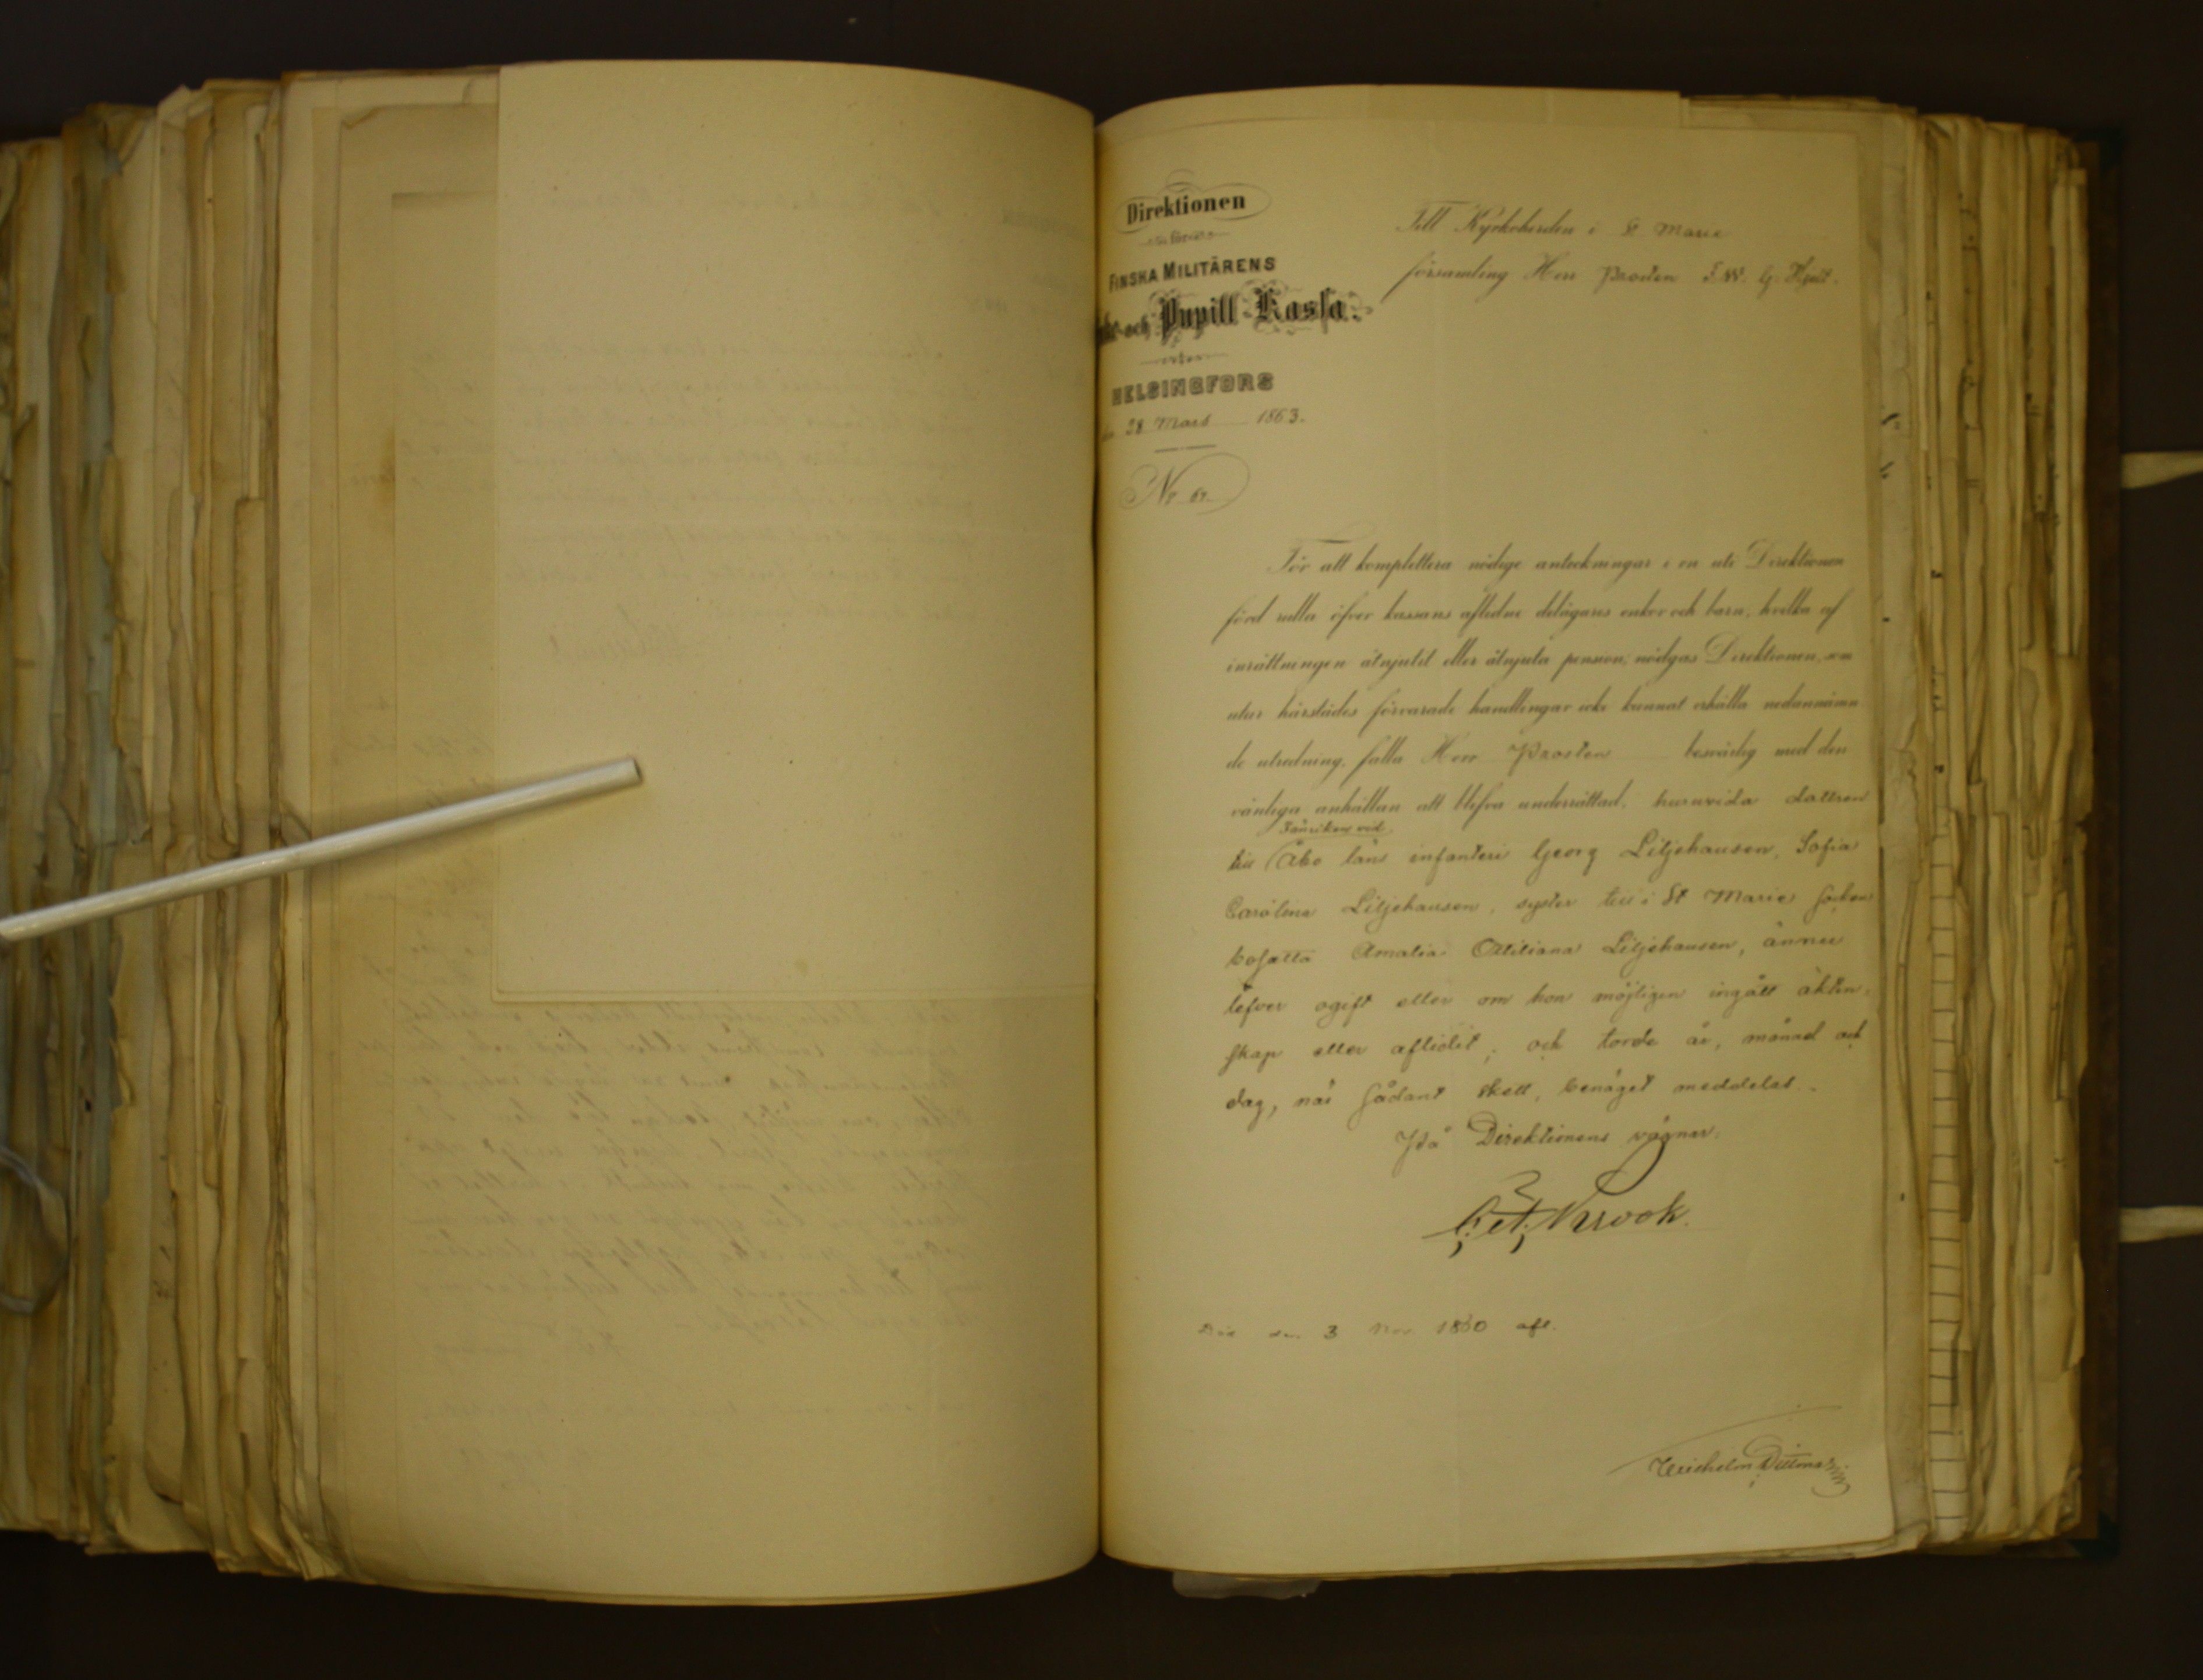 Direktionen
för
FINSKA MILITÄRENS
och Pupill Kassa.
HELSINGFORS
den 28 Mars 1863.
No 61.
Till Kyrkoherden i St Marie
församling Herr Prosten F. W. G. Hjelt.
För att komplettera nödige anteckningar i en uti Direktionen
förd rulla öfver kassans aflidne delägares enkor och barn, hvilka af
inrättningen åtnjutit eller åtnjuta pension, nödgas Direktionen, som
utur härstädes förvarade handlingar icke kunnat erhålla nedannämn
de utredning, falla Herr Prosten besvärlig med den
vänliga anhållan att blifva underrättad, huruvida dottren
Fänriken vid
till Åbo läns infanteri Georg Liljehausen, Sofia
Carolina Liljehausen, syster till i St Marie socken
bosatta Amalia Ottiliana Liljehausen, ännu
lefver ogift eller om hon möjligen ingått äkten-
skap eller aflidit; och torde år, månad och
dag, när sådant skett, benäget meddelas.
På Direktionens vägnar:
C. A. Krook.
den 3 Nov. 1860 afl.
Wilhelm Dittmar